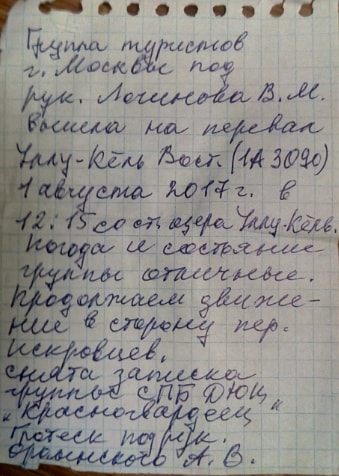 Группа туристов
г. Москвы под
рук. Логинова В.М.
вышла на перевал
Уллу-Кёль Вост. (1А 3090)
1 августа 2017 г. в
12:15 со ст. озера Уллу-Кёль.
Погода и состьяние
группы отличные.
Продолжаем движе-
ние в сторону пер.
Искровцев.
снята записка
группы СПБ ДЮЦ
"Красногвардеец"
Гротеск под рук.
А. В.